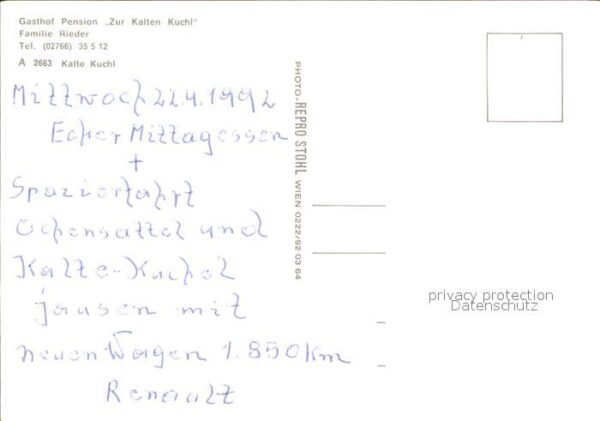 Gasthof Pension „Zur Kalten Kuchl"
Familie Rieder
Tel. (02766) 35 5 12
A 2663 Kalte Kuchl
Mittwoch 22.4.1992
Echer Mittagessen
+
Spazierfahrt
Ochensattel und
Kalte-Kuchel
jausen mit
neuen Wagen 1.850 Km
Renault
PHOTO-REPRO STOHL WIEN 0222/92 03 64
privacy protection
Datenschutz